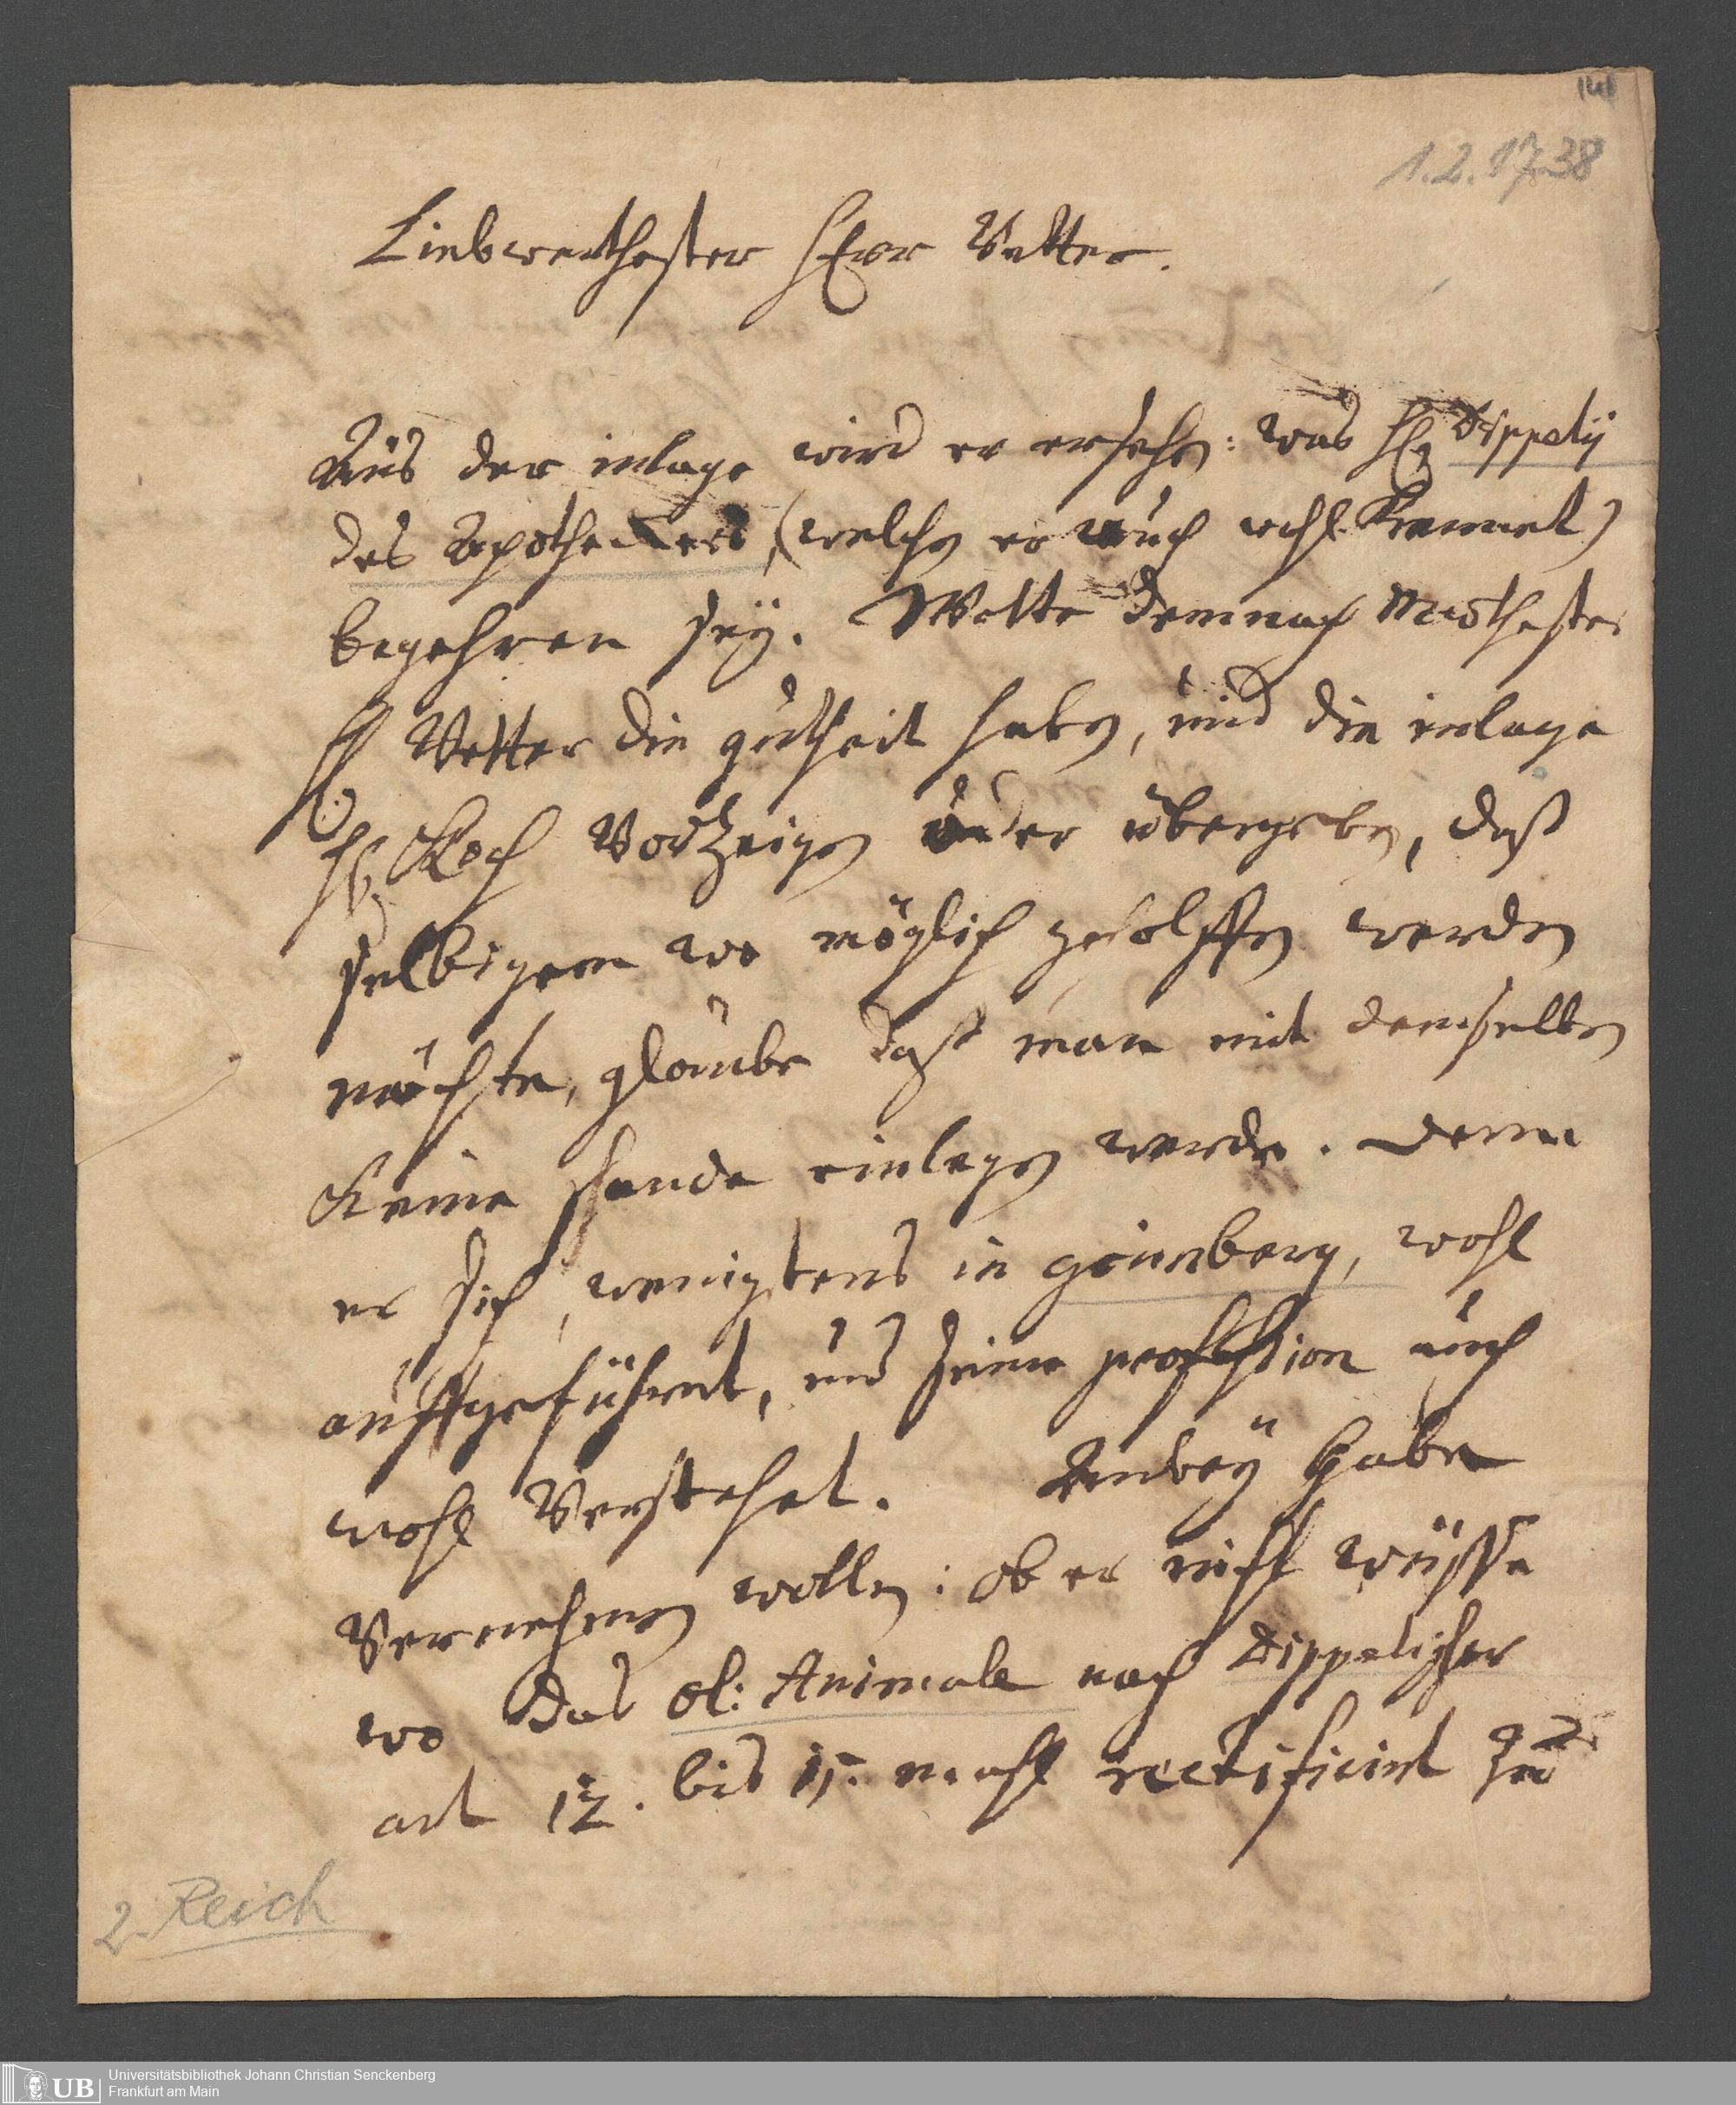 141
1.2.1738
Liebwerthester HErr Vetter.
Auß der inlage wird er ersehen: was H. Dippelij
des Apotheckers, (welchen er auch wohl kennet)
begehren sey. Wolte demnach
H Vetter die gutheit haben, und die inlage
H. Koch Vorzeigen oder übergeben, daß
selbigem wo möglich geholffen werden
möchte, glaube daß man mit demselben
Keine schande einlegen werde. denn
er sich, wenigstens in grünberg, wohl
auffgeführet, und seine profession auch
wohl Verstehet. Anbey habe
Vernehmen wollen: ob er nicht wüsste
wo das Ol: Animale nach Dippelischer
art 12. bis 15. mahl rectificirt zu
2 Reich
UB
Universitätsbibliothek Johann Christian Senckenberg
Frankfurt am Main